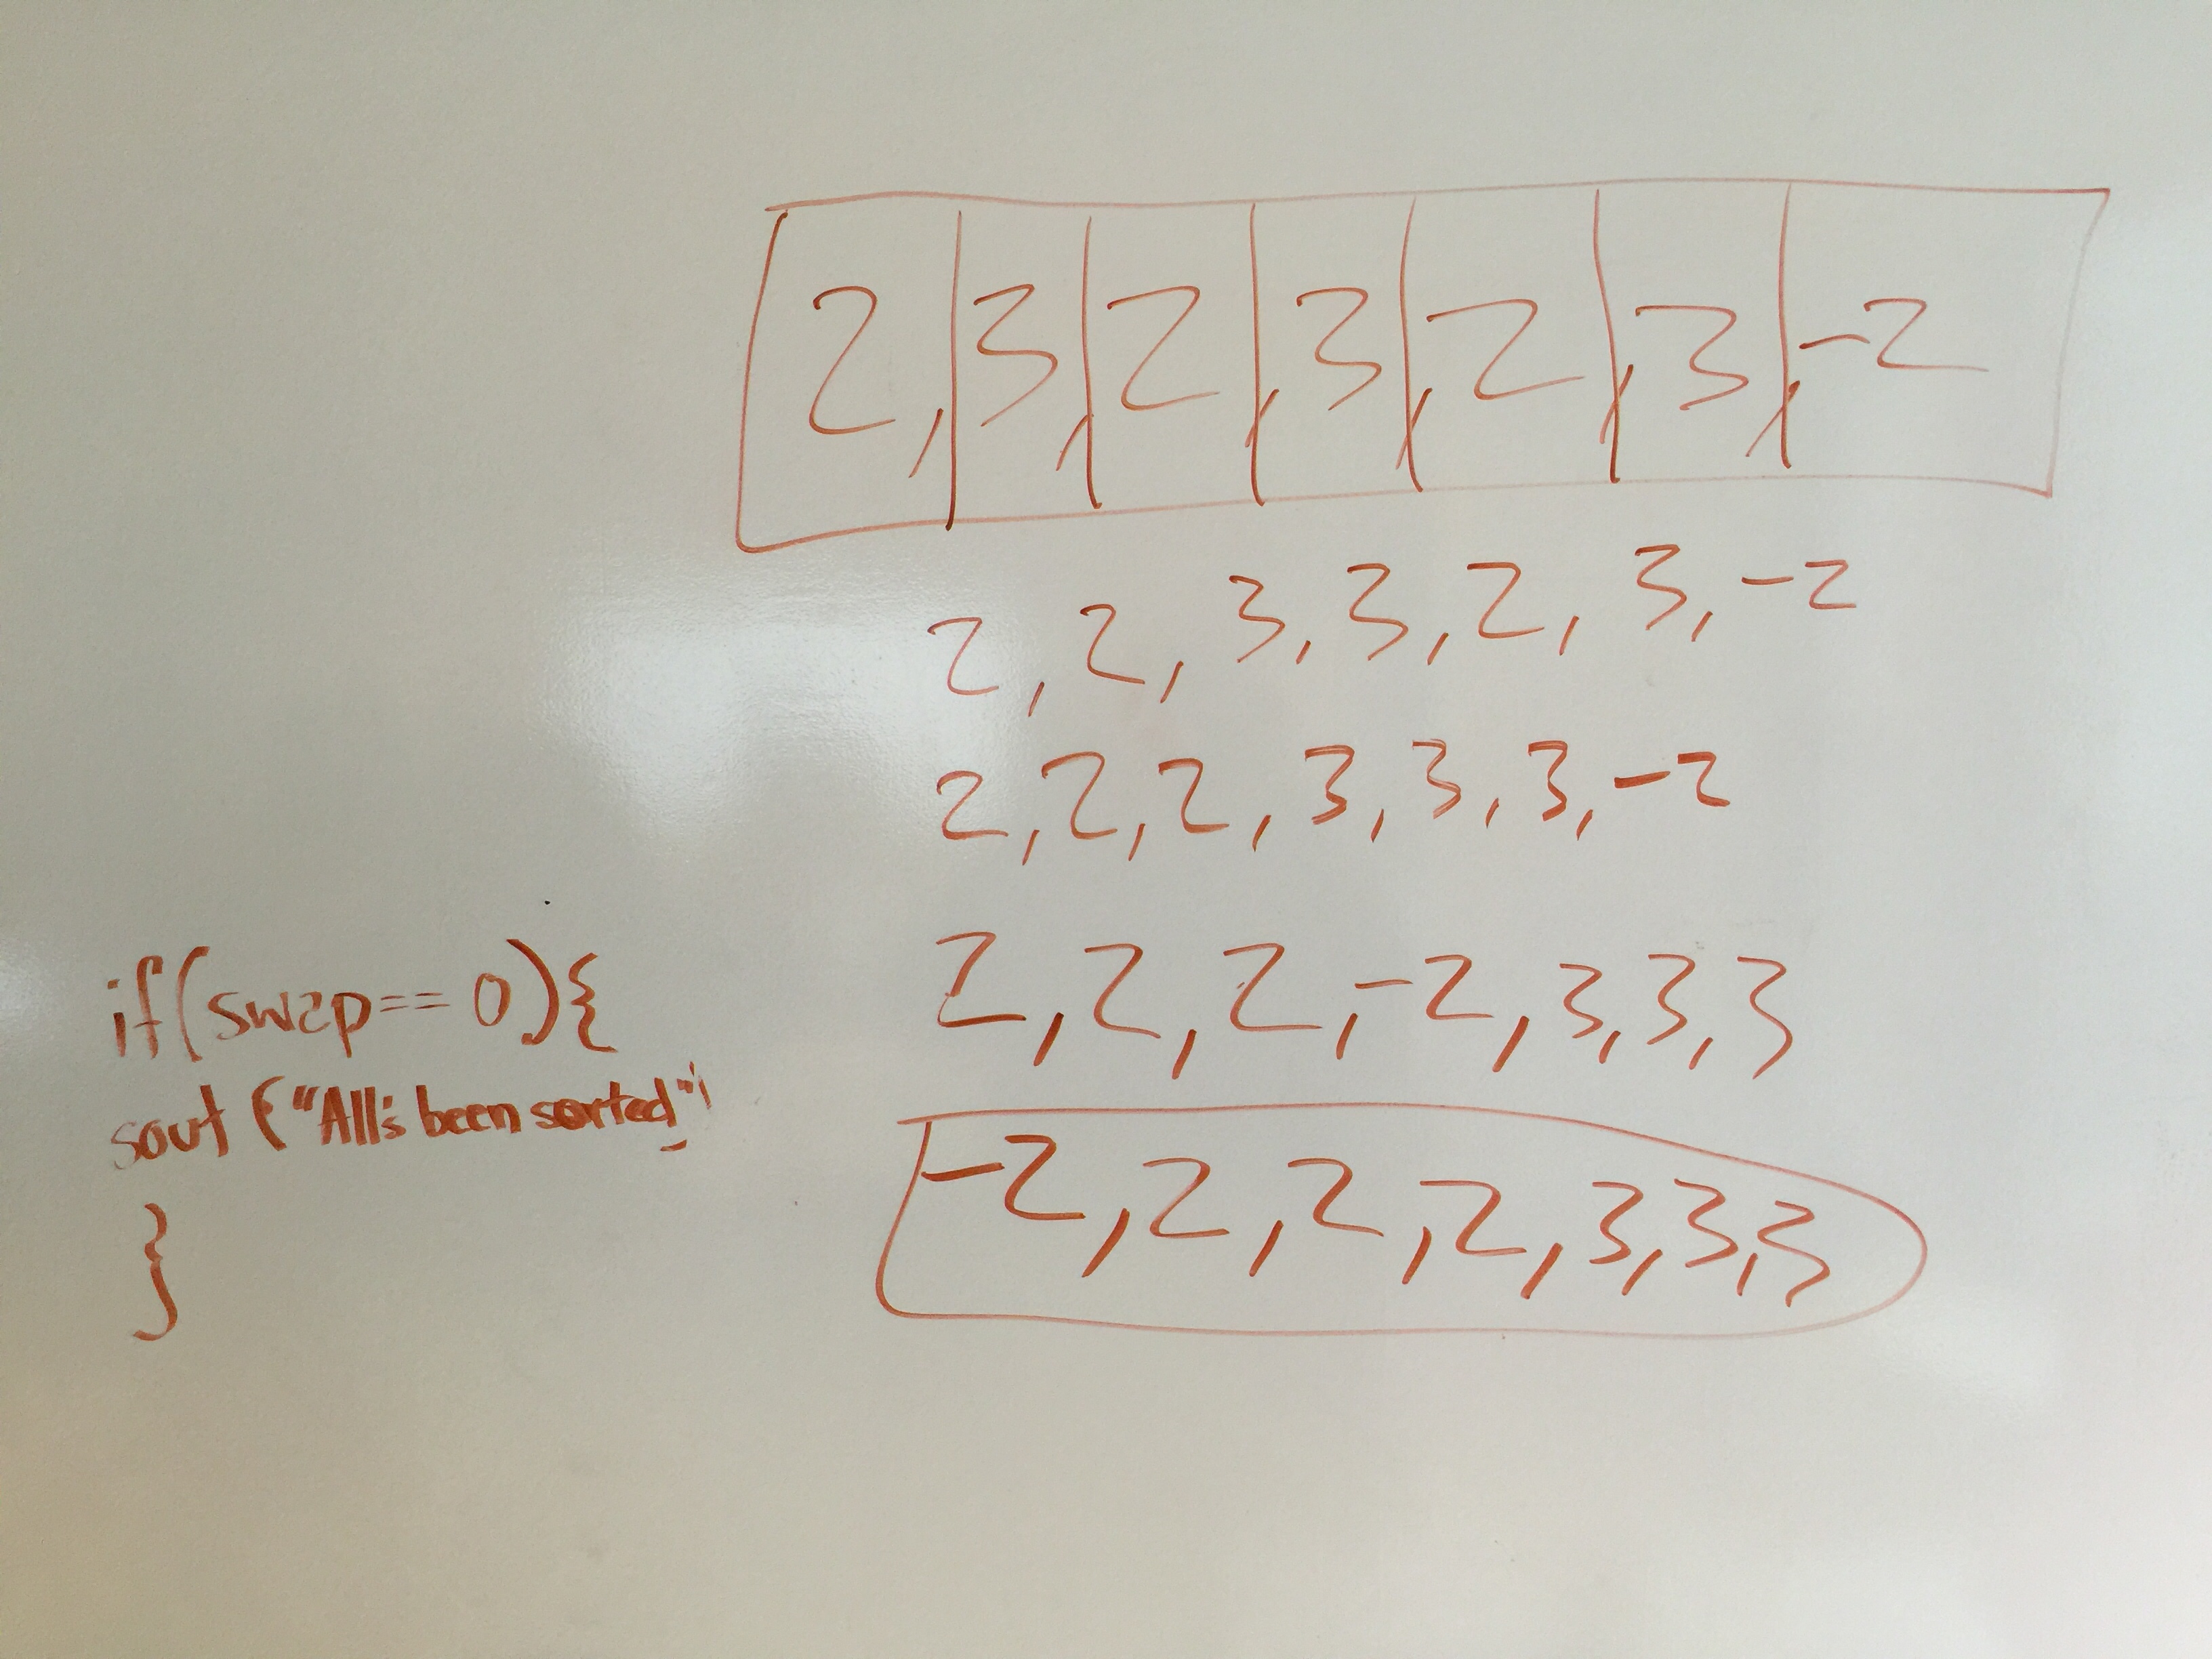 2, 3, 2, 3, 2, 3, -2
2, 2, 3, 3, 2, 3, -2
2, 2, 2, 3, 3, 3, -2
2, 2, 2, -2, 3, 3, 3
-2, 2, 2, 2, 3, 3, 3
if(swap== 0){
sout ("All's been sorted"
}